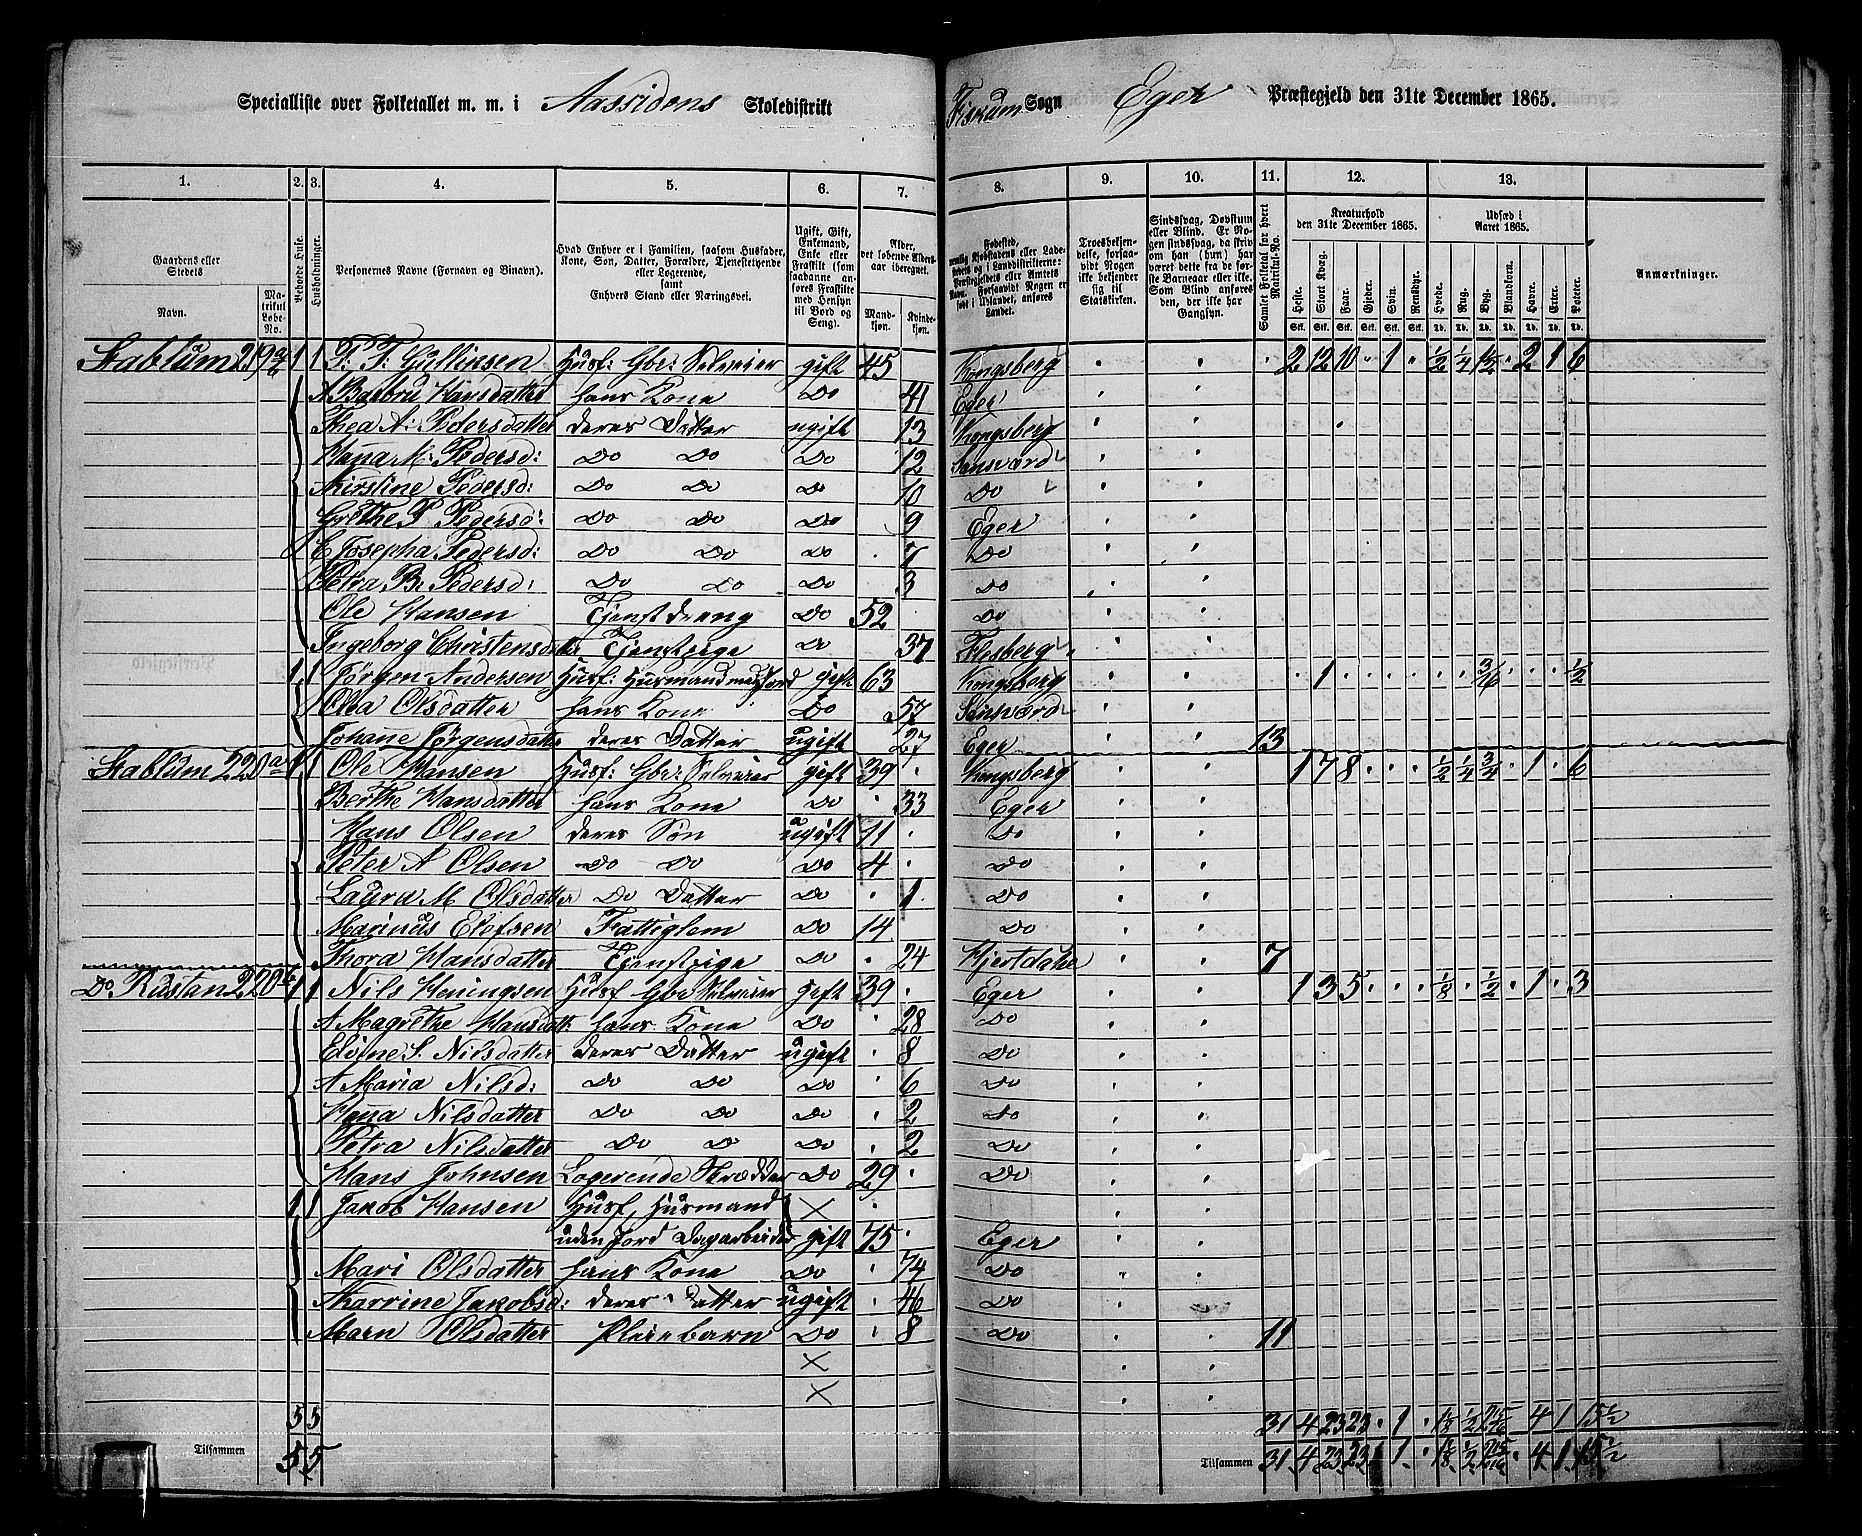 Specialliste over Folketallet m. m. i Aassidens Skoledistrikt Fiskum Sogn Eger Præstegjeld den 31te December 1865.
1. 2. 3. 4. 5. 6. 7. 8. 9. 10. 11. 12. 13.
Gaardens eller Stedets Navn. Matrikul Løbe-No. Beboede Huse. Husholdninger. Personernes Navne (Fornavn og Binavn). Hvad Enhver er i Familien, saasom Husfader, Kone, Søn, Datter, Forældre, Tjenestetyende eller Logerende, samt Enhvers Stand eller Næringsvei. Ugift, Gift, Enkemand, Enke eller Fraskilt (som saadanne anføres Fraskilte med Hensyn til Bord og Seng). Alder, det løbende Alders-aar iberegnet. Mandkjøn. Kvindekjøn.
Fødested, nemlig Kjøbstadens eller Ladestedets og i Landdistrikterne: Præstegjeldets eller Amtets Navn. Forsaavidt Nogen er født i Udlandet, anføres Landet. Troesbekjendelse, forsaavidt Nogen ikke bekjender sig til Statskirken. Sindssvag, Døvstum eller Blind. Er Nogen sindssvag, da skriv om han (hun) har været dette fra de første Barneaar eller ikke. Som Blind anføres den, der ikke har Gangsyn. Samlet Folketal for hvert Matrikul-No. Kreaturhold den 31te December 1865. Udsæd i Aaret 1865. Anmærkninger.
Heste. Stort Kvæg. Faar. Gjeder. Svin. Rensdyr. Hvede. Rug. Byg. Blandkorn. Havre. Erter. Poteter.
Stk. Stk. Stk. Stk. Stk. Stk. Td. Td. Td. Td. Td. Td. Td.
Stablum 219 1 1 P. T. Gullinsen Husf: Gbr: Selveier gift 45 Kongsberg 2 12 10 1 1/2 1/4 1 1/2 2 1 6
A Barbro Hansdatter hans Kone Do 41 Eger
Thea A: Pedersdatter deres Datter ugift 13 Kongsberg
Hana M: Pedersd: Do Do Do 12 Sansværd
Kirstine Pedersd: Do Do Do 10 Do
Grethe P Pedersd: Do Do Do 9 Eger
C Josepha Pedersd: Do Do Do 7 Do
Petra B. Pedersd: Do Do Do 3 Do
Ole Hansen Tjenstdreng Do 52 Do
Ingeborg Christensdatter Tjenstpige Do 37 Flesberg
1 1 Jørgen Andersen Husf: Husmand med Jord gift 63 Kongsberg 1 3/16 1/2
Olea Olsdatter hans Kone Do 57 Sansværd
Johane Jørgensdatter deres Datter ugift 27 Eger 13
Stablum 220a 1 1 Ole Hansen Husf: Gbr: Selveier gift 39 Kongsberg 1 7 8 1/2 1/4 3/4 1 6
Berthe Hansdatter hans Kone Do 33 Eger
Hans Olsen deres Søn ugift 11 Do
Peter A Olsen Do Do Do 4 Do
Laura M Olsdatter Do Datter Do 1 Do
Marinus Elefsen Fattiglem Do 14 Do
Thora Hansdatter Tjenstpige Do 24 Hjertdahl 7
Do Rustan 220b 1 1 Nils Heningsen Husf Gbr Selveier gift 39 Eger 1 3 5 1/8 1/2 1 3
A Magrethe Hansdatt. hans Kone Do 28 Do
Eløfne S. Nilsdatter deres Datter ugift 8 Do
A Maria Nilsd: Do Do Do 6 Do
Hana Nilsdatter Do Do Do 2 Do
Petra Nilsdatter Do Do Do 2 Do
Hans Johnsen Logerende Skrædder Do 29 Do
1 1 Jakob Hansen Husf, Husmand
uden Jord Dagarbeider gift 75 Eger
Mari Olsdatter hans Kone Do 74 Do
Karrine Jakobsd: deres Datter ugift 46 Do
Maren Olsdatter Pleiebarn Do 8 Do 11
5 5 31 4 23 23 1 1 1/8 1/2 4 1 15 1/2
Tilsammen 5 5 Tilsammen 31 4 23 23 1 1 1/8 1/2 2 15/16 4 1 15 1/2